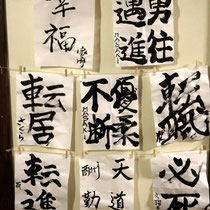 勇往
邁進
幸福
転職
優柔
不断
転居
さくら
必死
天道
酬勤
転進